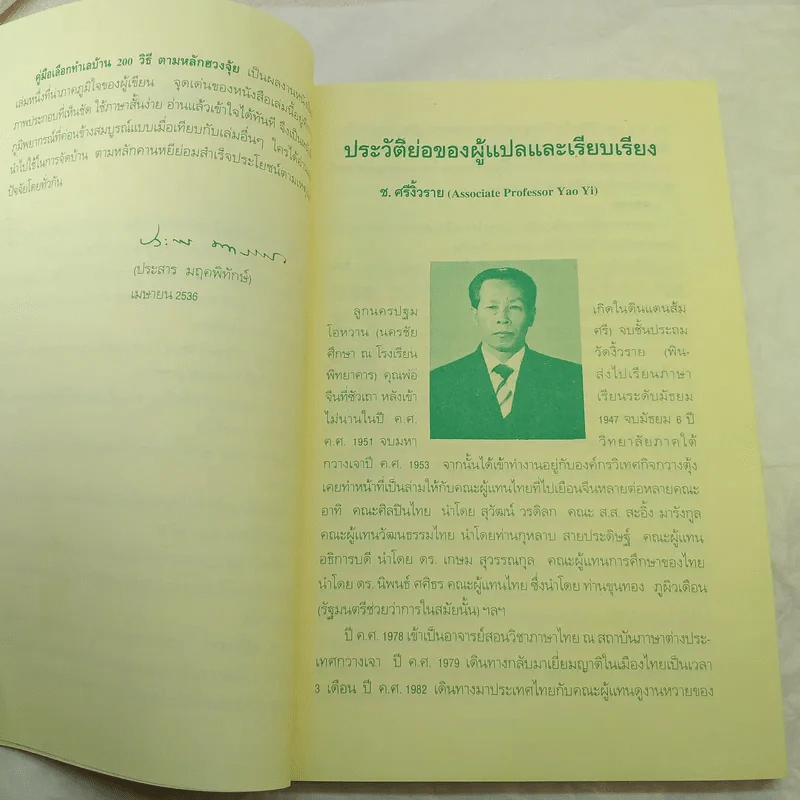 คู่มือเลือกทำเลบ้าน 200 วิธี ตามหลักฮวงจุ้ย เป็นผลงานหนังสือ
เล่มหนึ่งที่น่าภาคภูมิใจของผู้เขียน จุดเด่นของหนังสือเล่มนี้อยู่ที่
ภาพประกอบที่เห็นชัด ใช้ภาษาสั้นง่าย อ่านแล้วเข้าใจได้ทันที จึงเป็น
ภูมิพยากรณ์ที่ค่อนข้างสมบูรณ์แบบเมื่อเทียบกับเล่มอื่นๆ ใครได้
นำไปใช้ในการจัดบ้าน ตามหลักคานหยีย่อมสำเร็จประโยชน์ตามเหตุ
ปัจจัยโดยทั่วกัน
(ประสาร มฤคพิทักษ์)
เมษายน 2536
ประวัติย่อของผู้แปลและเรียบเรียง
ช. ศรีงิ้วราย (Associate Professor Yao Yi)
ลูกนครปฐม เกิดในดินแดนส้ม
โอหวาน (นครชัย ศรี) จบชั้นประถม
ศึกษา ณ โรงเรียน วัดงิ้วราย (พิน-
พิทยาคาร) คุณพ่อ ส่งไปเรียนภาษา
จีนที่ซัวเถา หลังเข้า เรียนระดับมัธยม
ไม่นานในปี ค.ศ. 1947 จบมัธยม 6 ปี
ค.ศ. 1951 จบมหา วิทยาลัยภาคใต้
กวางเจาปี ค.ศ. 1953 จากนั้นได้เข้าทำงานอยู่กับองค์กรวิเทศกิจกวางตุ้ง
เคยทำหน้าที่เป็นล่ามให้กับคณะผู้แทนไทยที่ไปเยือนจีนหลายต่อหลายคณะ
อาทิ คณะศิลปินไทย นำโดย สุวัฒน์ วรดิลก คณะ ส.ส. สะอิ้ง มารังกูล
คณะผู้แทนวัฒนธรรมไทย นำโดยท่านกุหลาบ สายประดิษฐ์ คณะผู้แทน
อธิการบดี นำโดย ดร. เกษม สุวรรณกุล คณะผู้แทนการศึกษาของไทย
นำโดย ดร. นิพนธ์ ศศิธร คณะผู้แทนไทย ซึ่งนำโดย ท่านขุนทอง ภูผิวเดือน
(รัฐมนตรีช่วยว่าการในสมัยนั้น) ฯลฯ
ปี ค.ศ. 1978 เข้าเป็นอาจารย์สอนวิชาภาษาไทย ณ สถาบันภาษาต่างประ-
เทศกวางเจา ปี ค.ศ. 1979 เดินทางกลับมาเยี่ยมญาติในเมืองไทยเป็นเวลา
3 เดือน ปี ค.ศ. 1982 เดินทางมาประเทศไทยกับคณะผู้แทนดูงานหวายของ